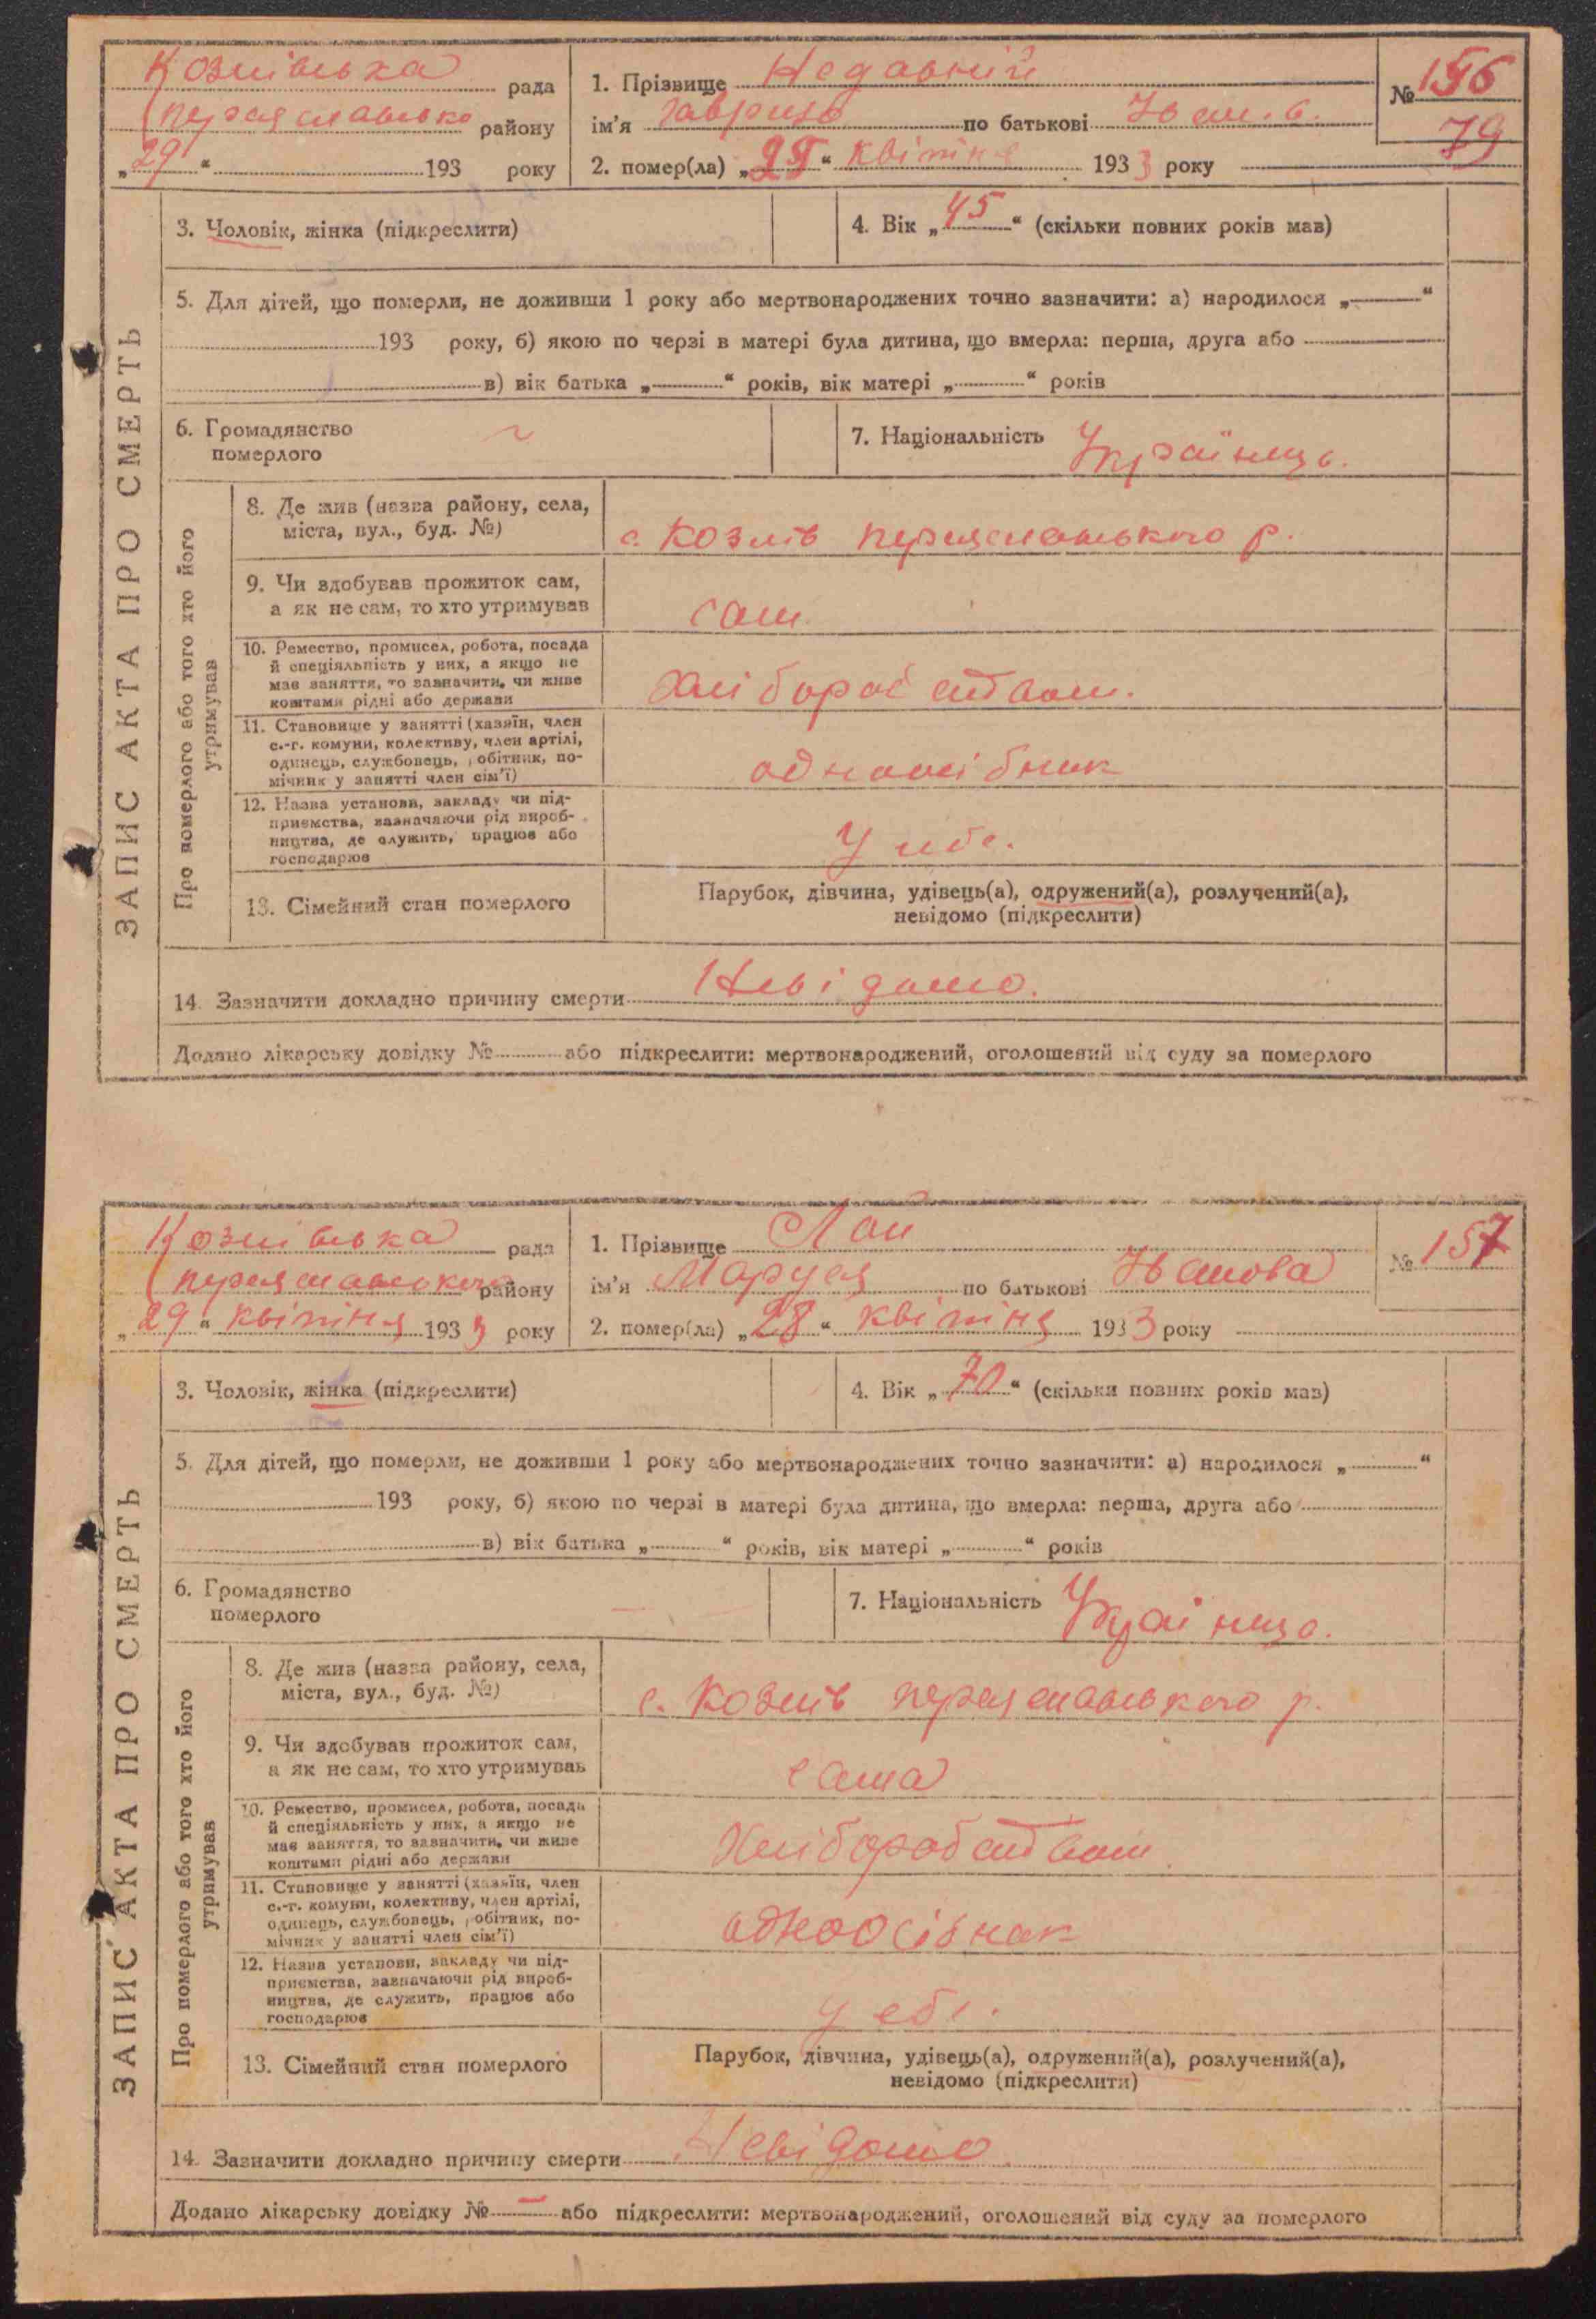 Козлівська рада
Переяславсько району
„29“ 193 року
1. Прізвище Недавній
№ 156
ім'я Гаврило по батькові Іван.в.
79
2. помер(ла) „28“ квітня 1933 року
3. Чоловік, жінка (підкреслити)
4. Вік „45“ (скільки повних років мав)
5. Для дітей, що померли, не доживши 1 року або мертвонароджених точно зазначити: а) народилося „ “
193 року, б) якою по черзі в матері була дитина, що вмерла: перша, друга або
в) вік батька „ “ років, вік матері „ “ років
6. Громадянство
померлого
7. Національність Українць.
ЗАПИС АКТА ПРО СМЕРТЬ
Про померлого або того хто його
утримував
8. Де жив (назва району, села,
міста, вул., буд. №)
с. Козлів переяславського р.
9. Чи здобував прожиток сам,
а як не сам, то хто утримував
сам
10. Ремество, промисел, робота, посада
й спеціяльність у них, а якщо не
має заняття, то зазначити, чи живе
коштами рідні або держави
Хліборобством.
11. Становище у занятті (хазяїн, член
с.-г. комуни, колективу, член артілі,
одинець, службовець, робітник, по-
мічник у занятті член сім'ї)
одноосібник
12. Назва установи, закладу чи під-
приємства, зазначаючи рід вироб-
ництва, де служить, працює або
господарює
У себе.
13. Сімейний стан померлого
Парубок, дівчина, удівець(а), одружений(а), розлучений(а),
невідомо (підкреслити)
14. Зазначити докладно причину смерти Невідомо.
Додано лікарську довідку № або підкреслити: мертвонароджений, оголошений від суду за померлого
Козлівська рада
Переяславського району
„29“ квітня 1933 року
1. Прізвище Лай
№ 157
ім'я Маруся по батькові Іванова
2. помер(ла) „28“ квітня 1933 року
3. Чоловік, жінка (підкреслити)
4. Вік „70“ (скільки повних років мав)
5. Для дітей, що померли, не доживши 1 року або мертвонароджених точно зазначити: а) народилося „ “
193 року, б) якою по черзі в матері була дитина, що вмерла: перша, друга або
в) вік батька „ “ років, вік матері „ “ років
6. Громадянство
померлого
7. Національність
ЗАПИС АКТА ПРО СМЕРТЬ
Про померлого або того хто його
утримував
8. Де жив (назва району, села,
міста, вул., буд. №)
с. Козлів переяславського р.
9. Чи здобував прожиток сам,
а як не сам, то хто утримував
сама
10. Ремество, промисел, робота, посада
й спеціяльність у них, а якщо не
має заняття, то зазначити, чи живе
коштами рідні або держави
Хліборобством
11. Становище у занятті (хазяїн, член
с.-г. комуни, колективу, член артілі,
одинець, службовець, робітник, по-
мічник у занятті член сім'ї)
одноосібнак
12. Назва установи, закладу чи під-
приємства, зазначаючи рід вироб-
ництва, де служить, працює або
господарює
у себе.
13. Сімейний стан померлого
Парубок, дівчина, удівець(а), одружений(а), розлучений(а),
невідомо (підкреслити)
14. Зазначити докладно причину смерти Невідомо
Додано лікарську довідку № — або підкреслити: мертвонароджений, оголошений від суду за померлого